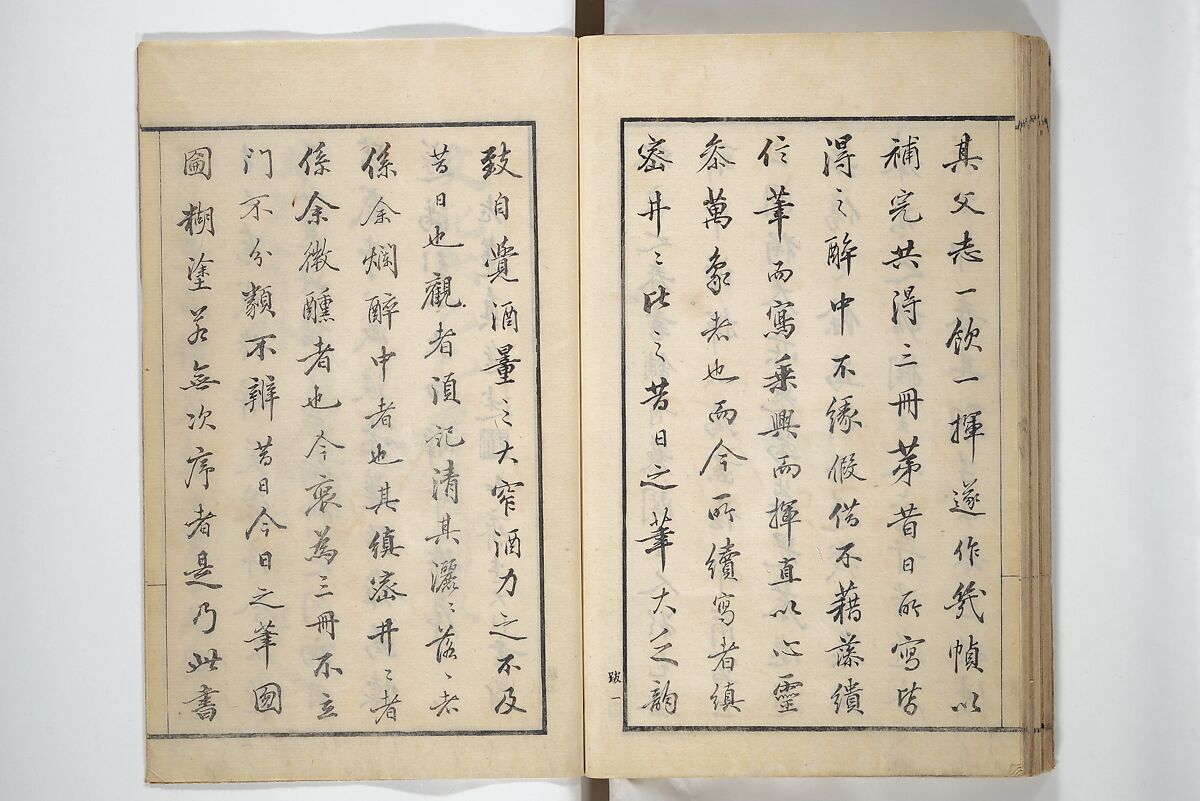 其父志一飲一揮遂作幾幀以
補完共得三冊苐昔日所寫皆
得之醉中不緣假借不藉藻繢
信筆而寫乘興而揮直以心靈
叅萬象者也而今所續寫者縝
密井〻比之昔日之筆大乏韵
跋一
致自覺酒量之大窄酒力之不及
昔日也觀者須記清其灑〻落〻者
係余爛醉中者也其縝密井〻者
係余微醺者也今裒為三冊不立
门不分類不辨昔日今日之筆圖
圖糊塗若無次序者是乃此書